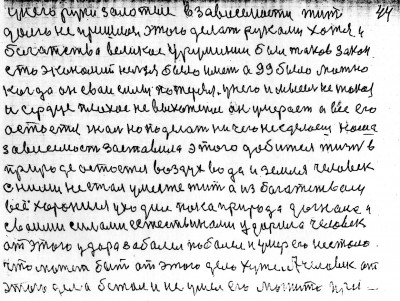 у него руки золотые в зависемости жит 44
дальше не пришлось этого делат руками хотя и
богатство великое у румынии был таков закон
сто экономит нельзя было имет а 99 было можно
когда он сваи силы потерял. у него и мысли не такая
и сердце плохае не выхожение он умерает а все его
астается жалко поделат ничего не сделаеш наша
зависемость заставила этого добится жит в
природе астается воздух вода и земля человек
с ними не стал уместе жит а из богатеством
всё хоронился уходил пака природа дагнала и
сваими силами естественами ударила человек
от этого удара забалел поболел и умер его не стало.
что может быт от этого дела хуже.7 человек от
этого дела бежал и не умел его